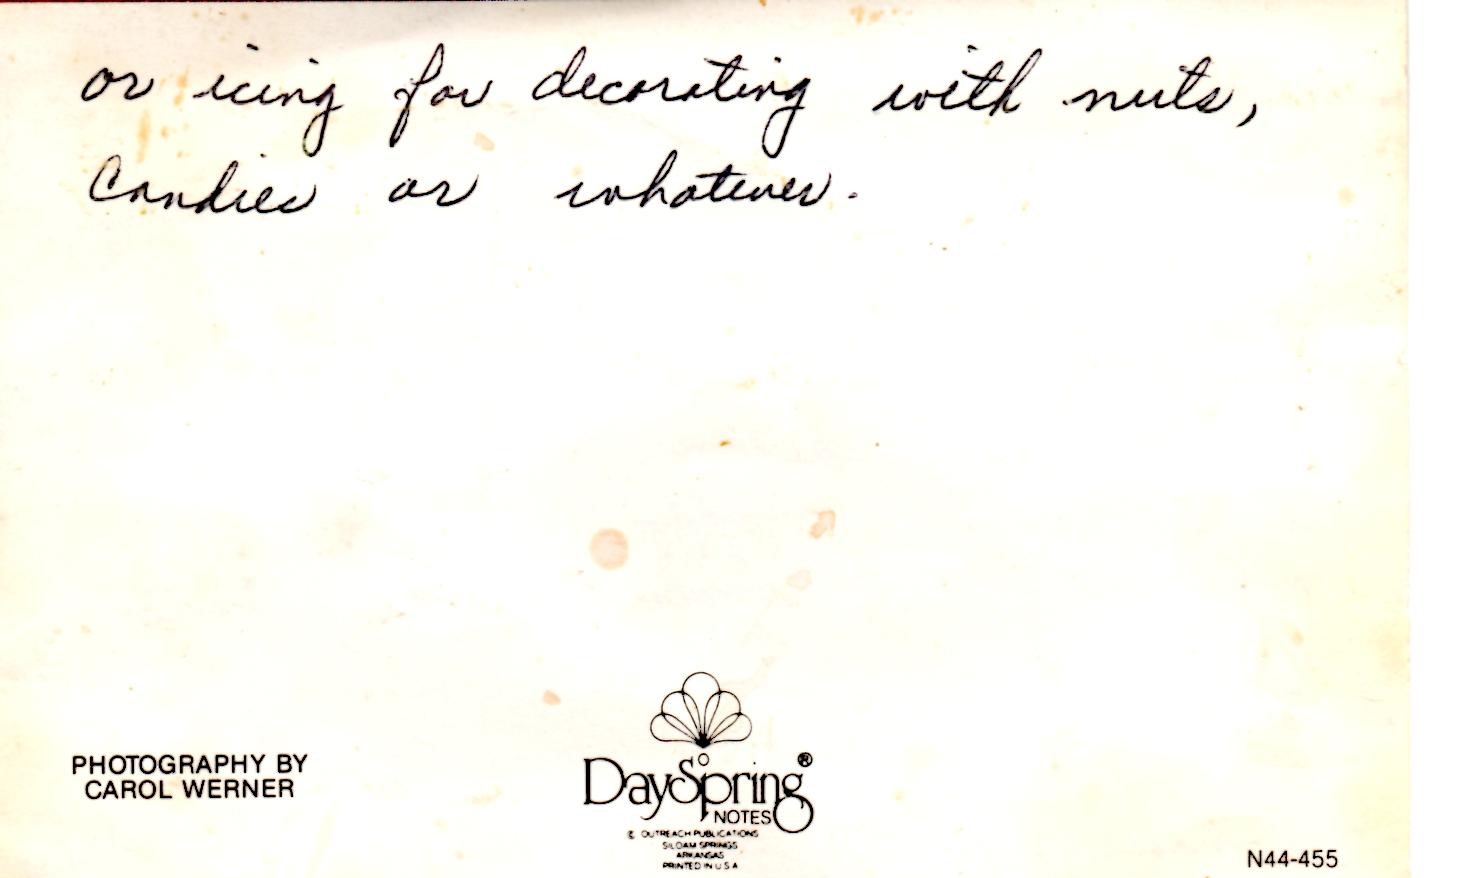 or icing for decorating with nuts,
Candies or whatever.
PHOTOGRAPHY BY
CAROL WERNER
DaySpring®
NOTES
© OUTREACH PUBLICATIONS
SILOAM SPRINGS
ARKANSAS
PRINTED IN U S A
N44-455